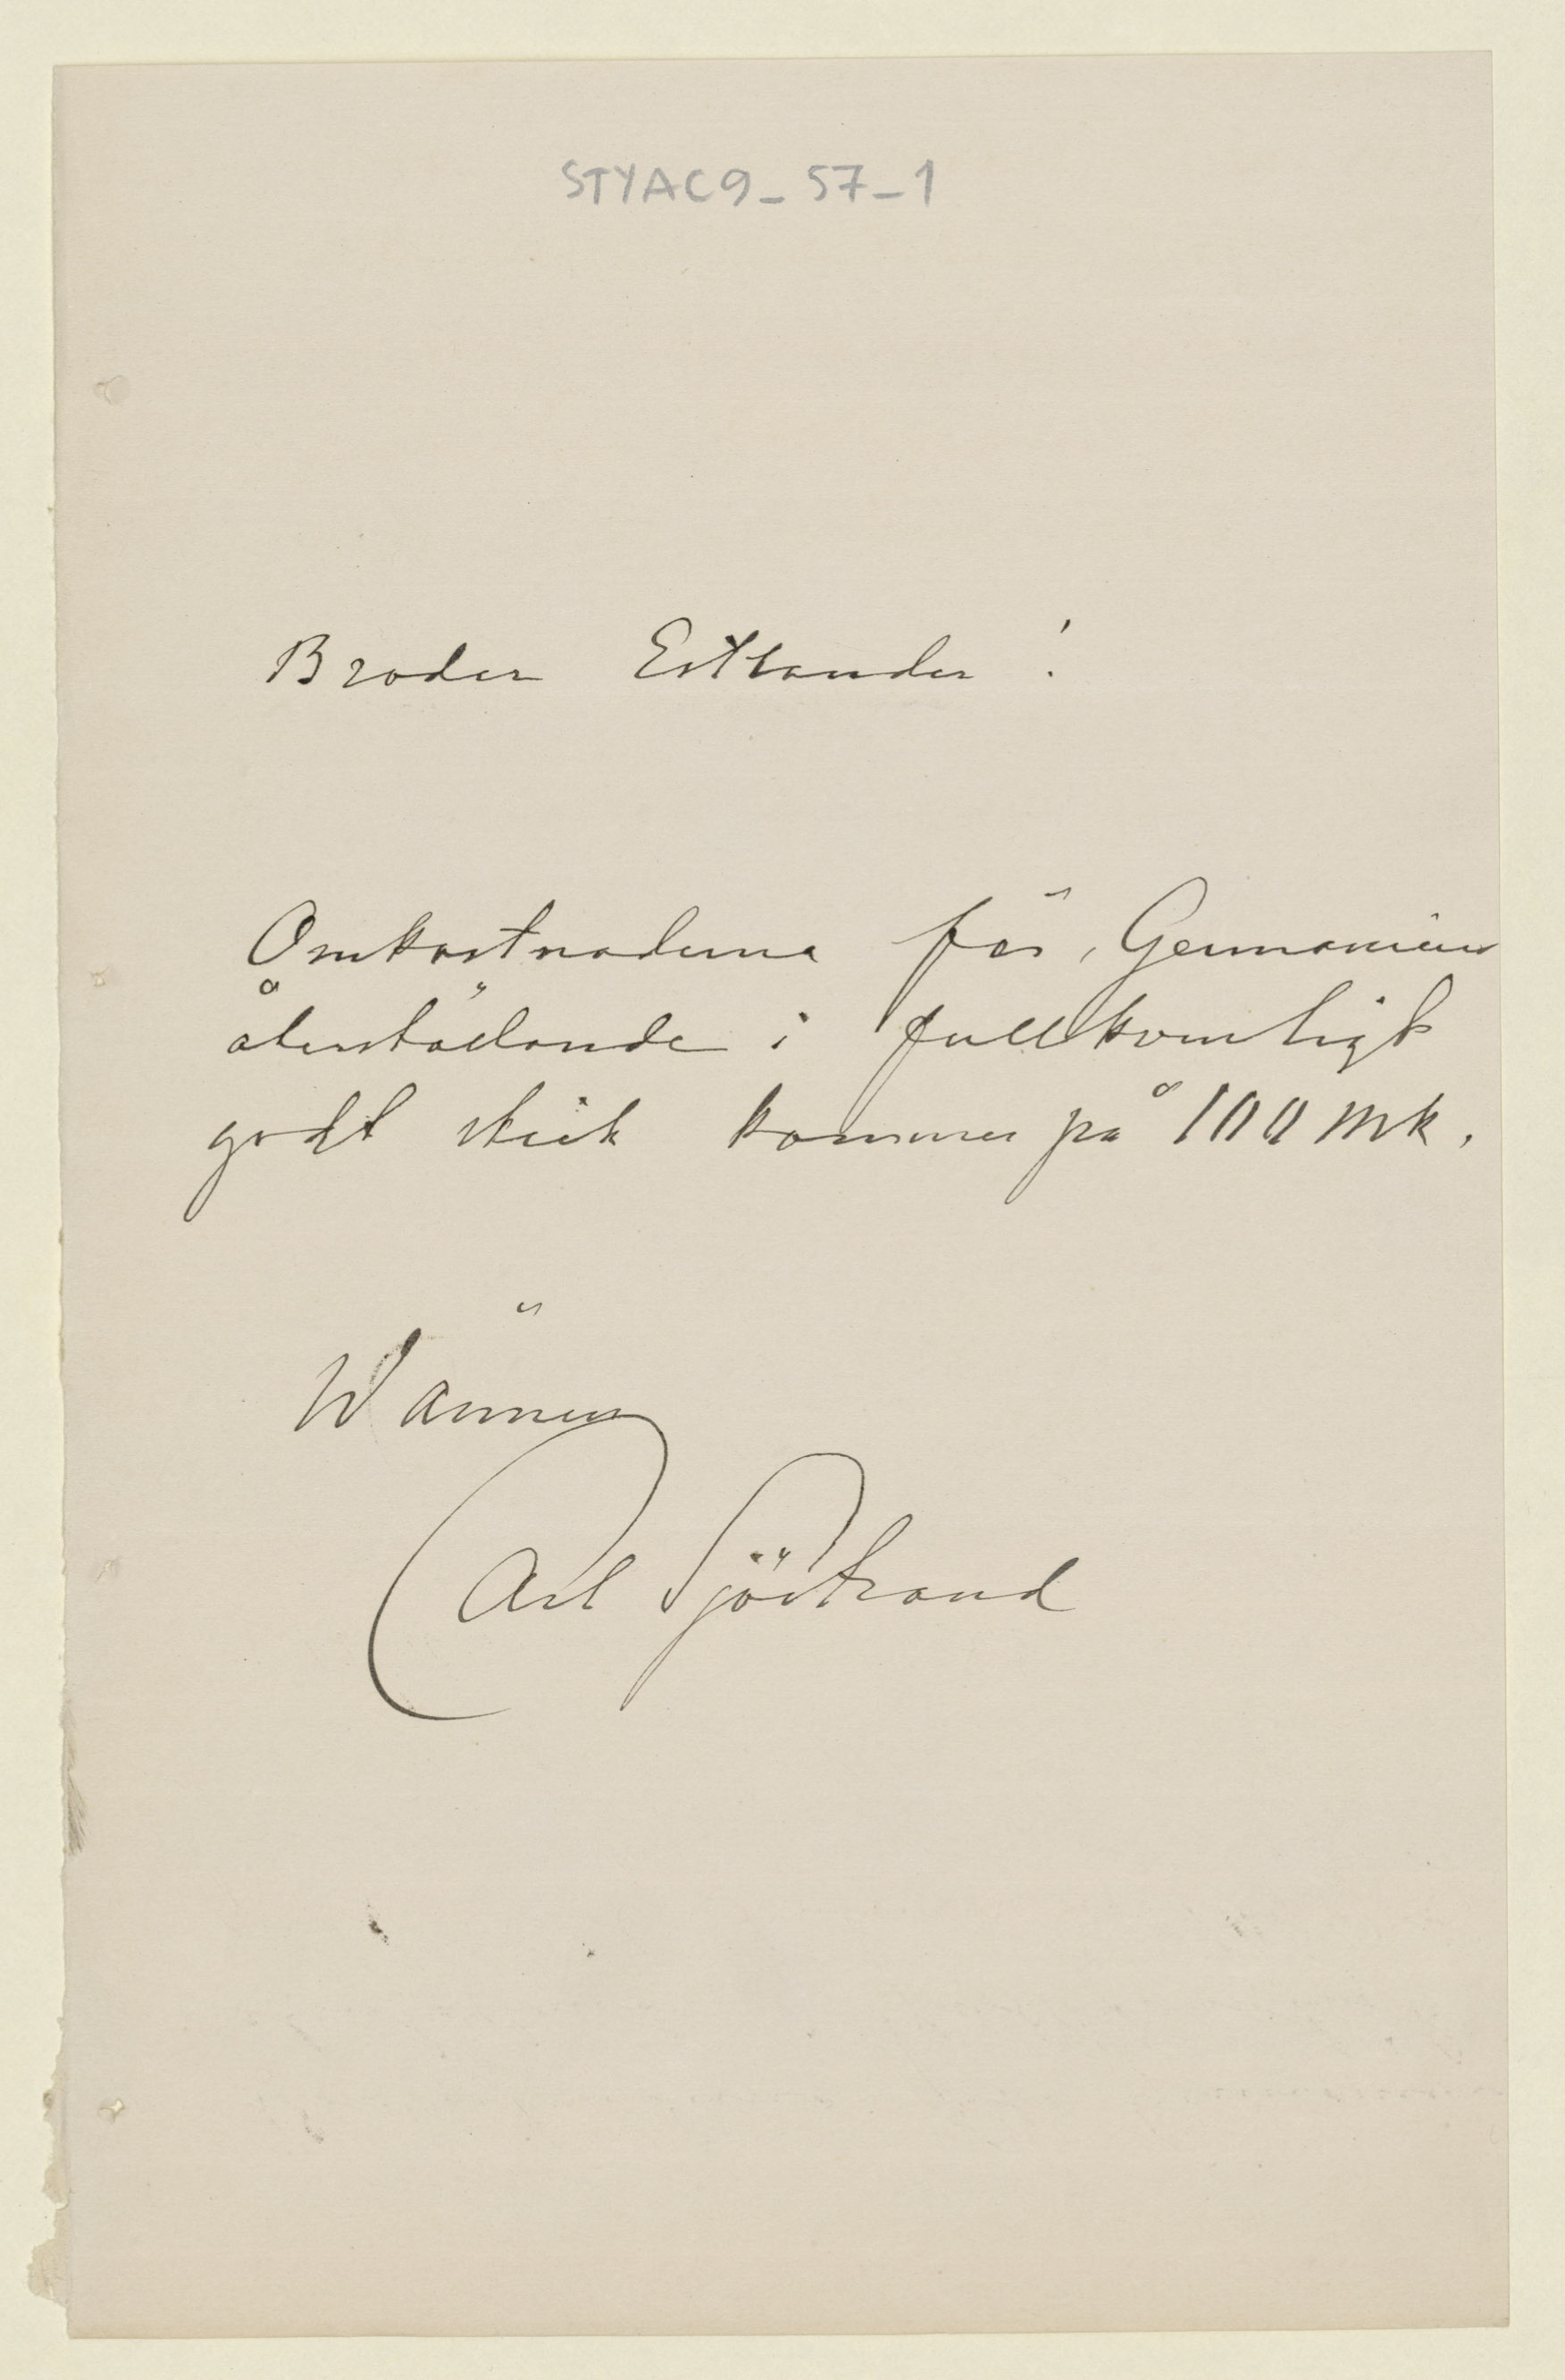 STYAC9_57_1
Broder Estlander!
Omkostnaderna för Germanicus
återställande i fullkomligt
godt skick kommer på 100 mk.
Wännen
Carl Sjöstrand